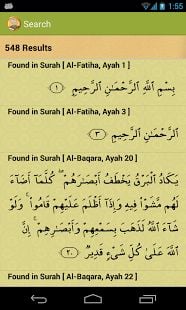 1:55
Search
548 Results
Found in Surah [ Al-Fatiha, Ayah 1 ]
بِسْمِ ٱللَّهِ ٱلرَّحْمَٰنِ ٱلرَّحِيمِ ١
Found in Surah [ Al-Fatiha, Ayah 3 ]
ٱلرَّحْمَٰنِ ٱلرَّحِيمِ ٣
Found in Surah [ Al-Baqara, Ayah 20 ]
يَكَادُ ٱلْبَرْقُ يَخْطَفُ أَبْصَٰرَهُمْ ۖ كُلَّمَآ أَضَآءَ
لَهُم مَّشَوْا۟ فِيهِ وَإِذَآ أَظْلَمَ عَلَيْهِمْ قَامُوا۟ ۚ وَلَوْ
شَآءَ ٱللَّهُ لَذَهَبَ بِسَمْعِهِمْ وَأَبْصَٰرِهِمْ ۚ إِنَّ
ٱللَّهَ عَلَىٰ كُلِّ شَىْءٍ قَدِيرٌ ٢٠
Found in Surah [ Al-Baqara, Ayah 22 ]